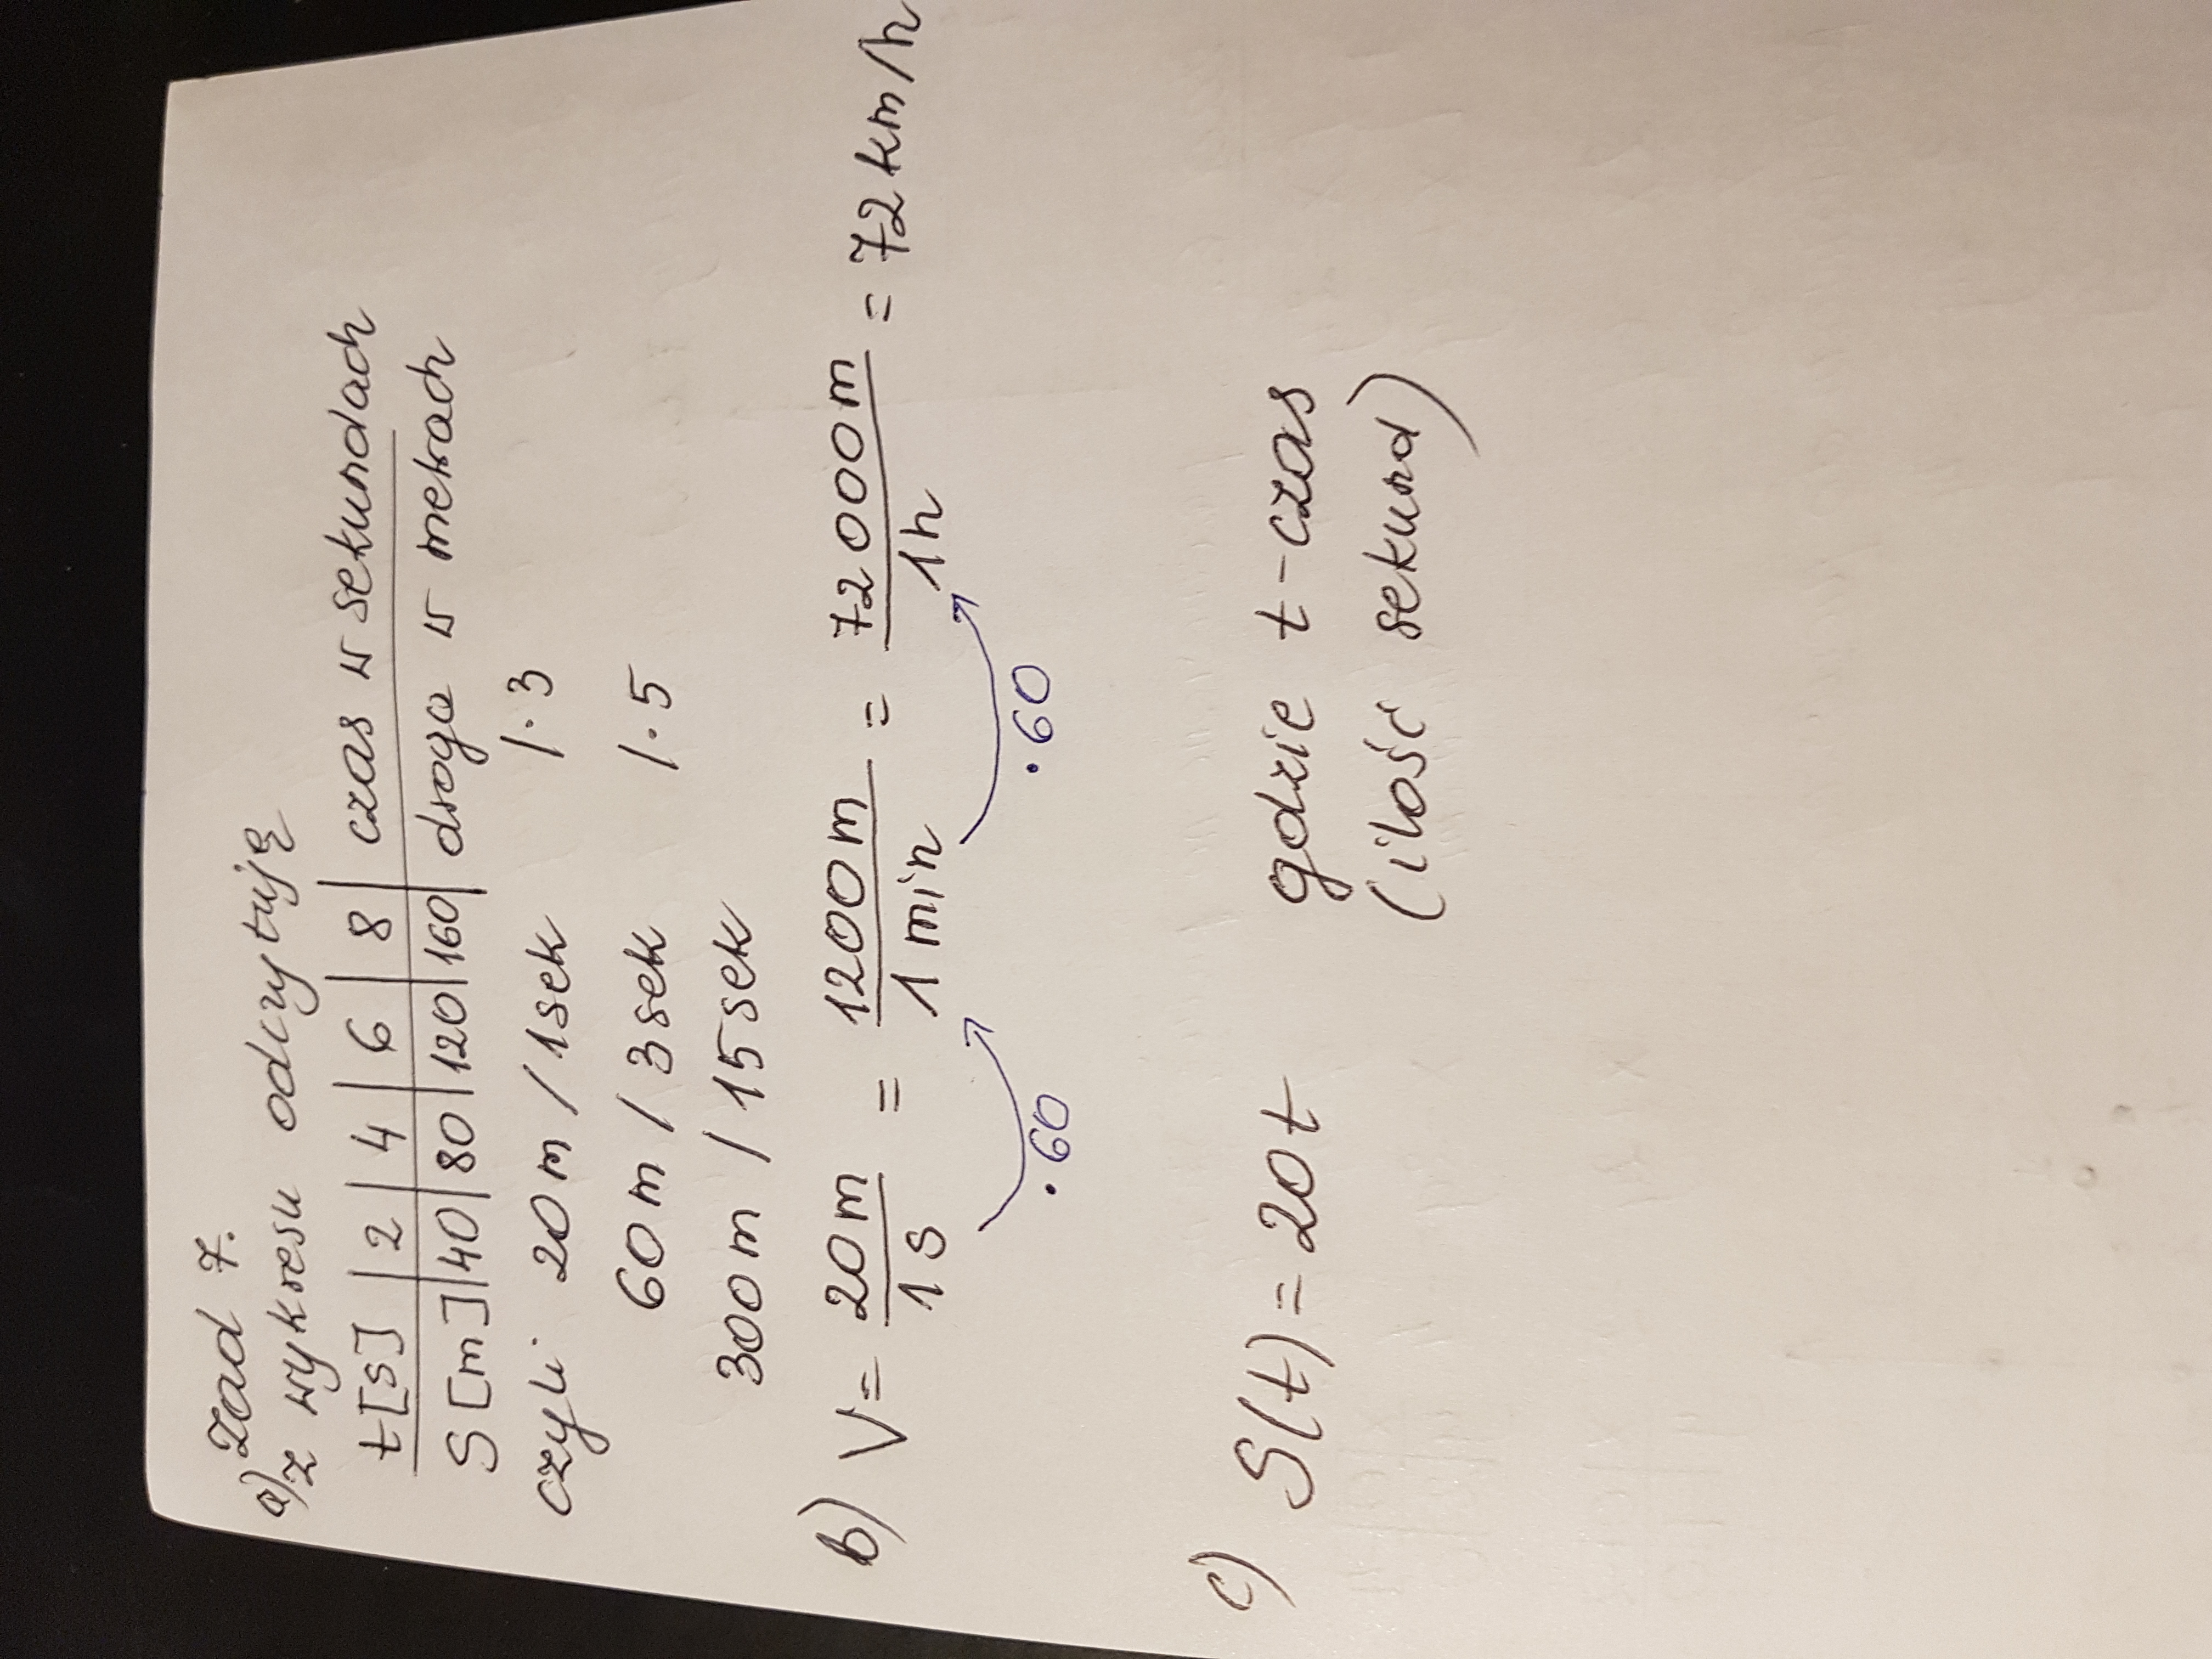 Zad 7.
a) z wykresu odczytuję
t[s] | 2 | 4 | 6 | 8 | czas w sekundach
S[m] | 40 | 80 | 120 | 160 | droga w metrach
czyli: 20m / 1sek /·3
60m / 3sek /·5
300m / 15sek
b) V = 20m/1s = 1200m/1min = 72000m/1h = 72km/h
·60 ·60
c) S(t) = 20t gdzie t-czas
(ilość sekund)